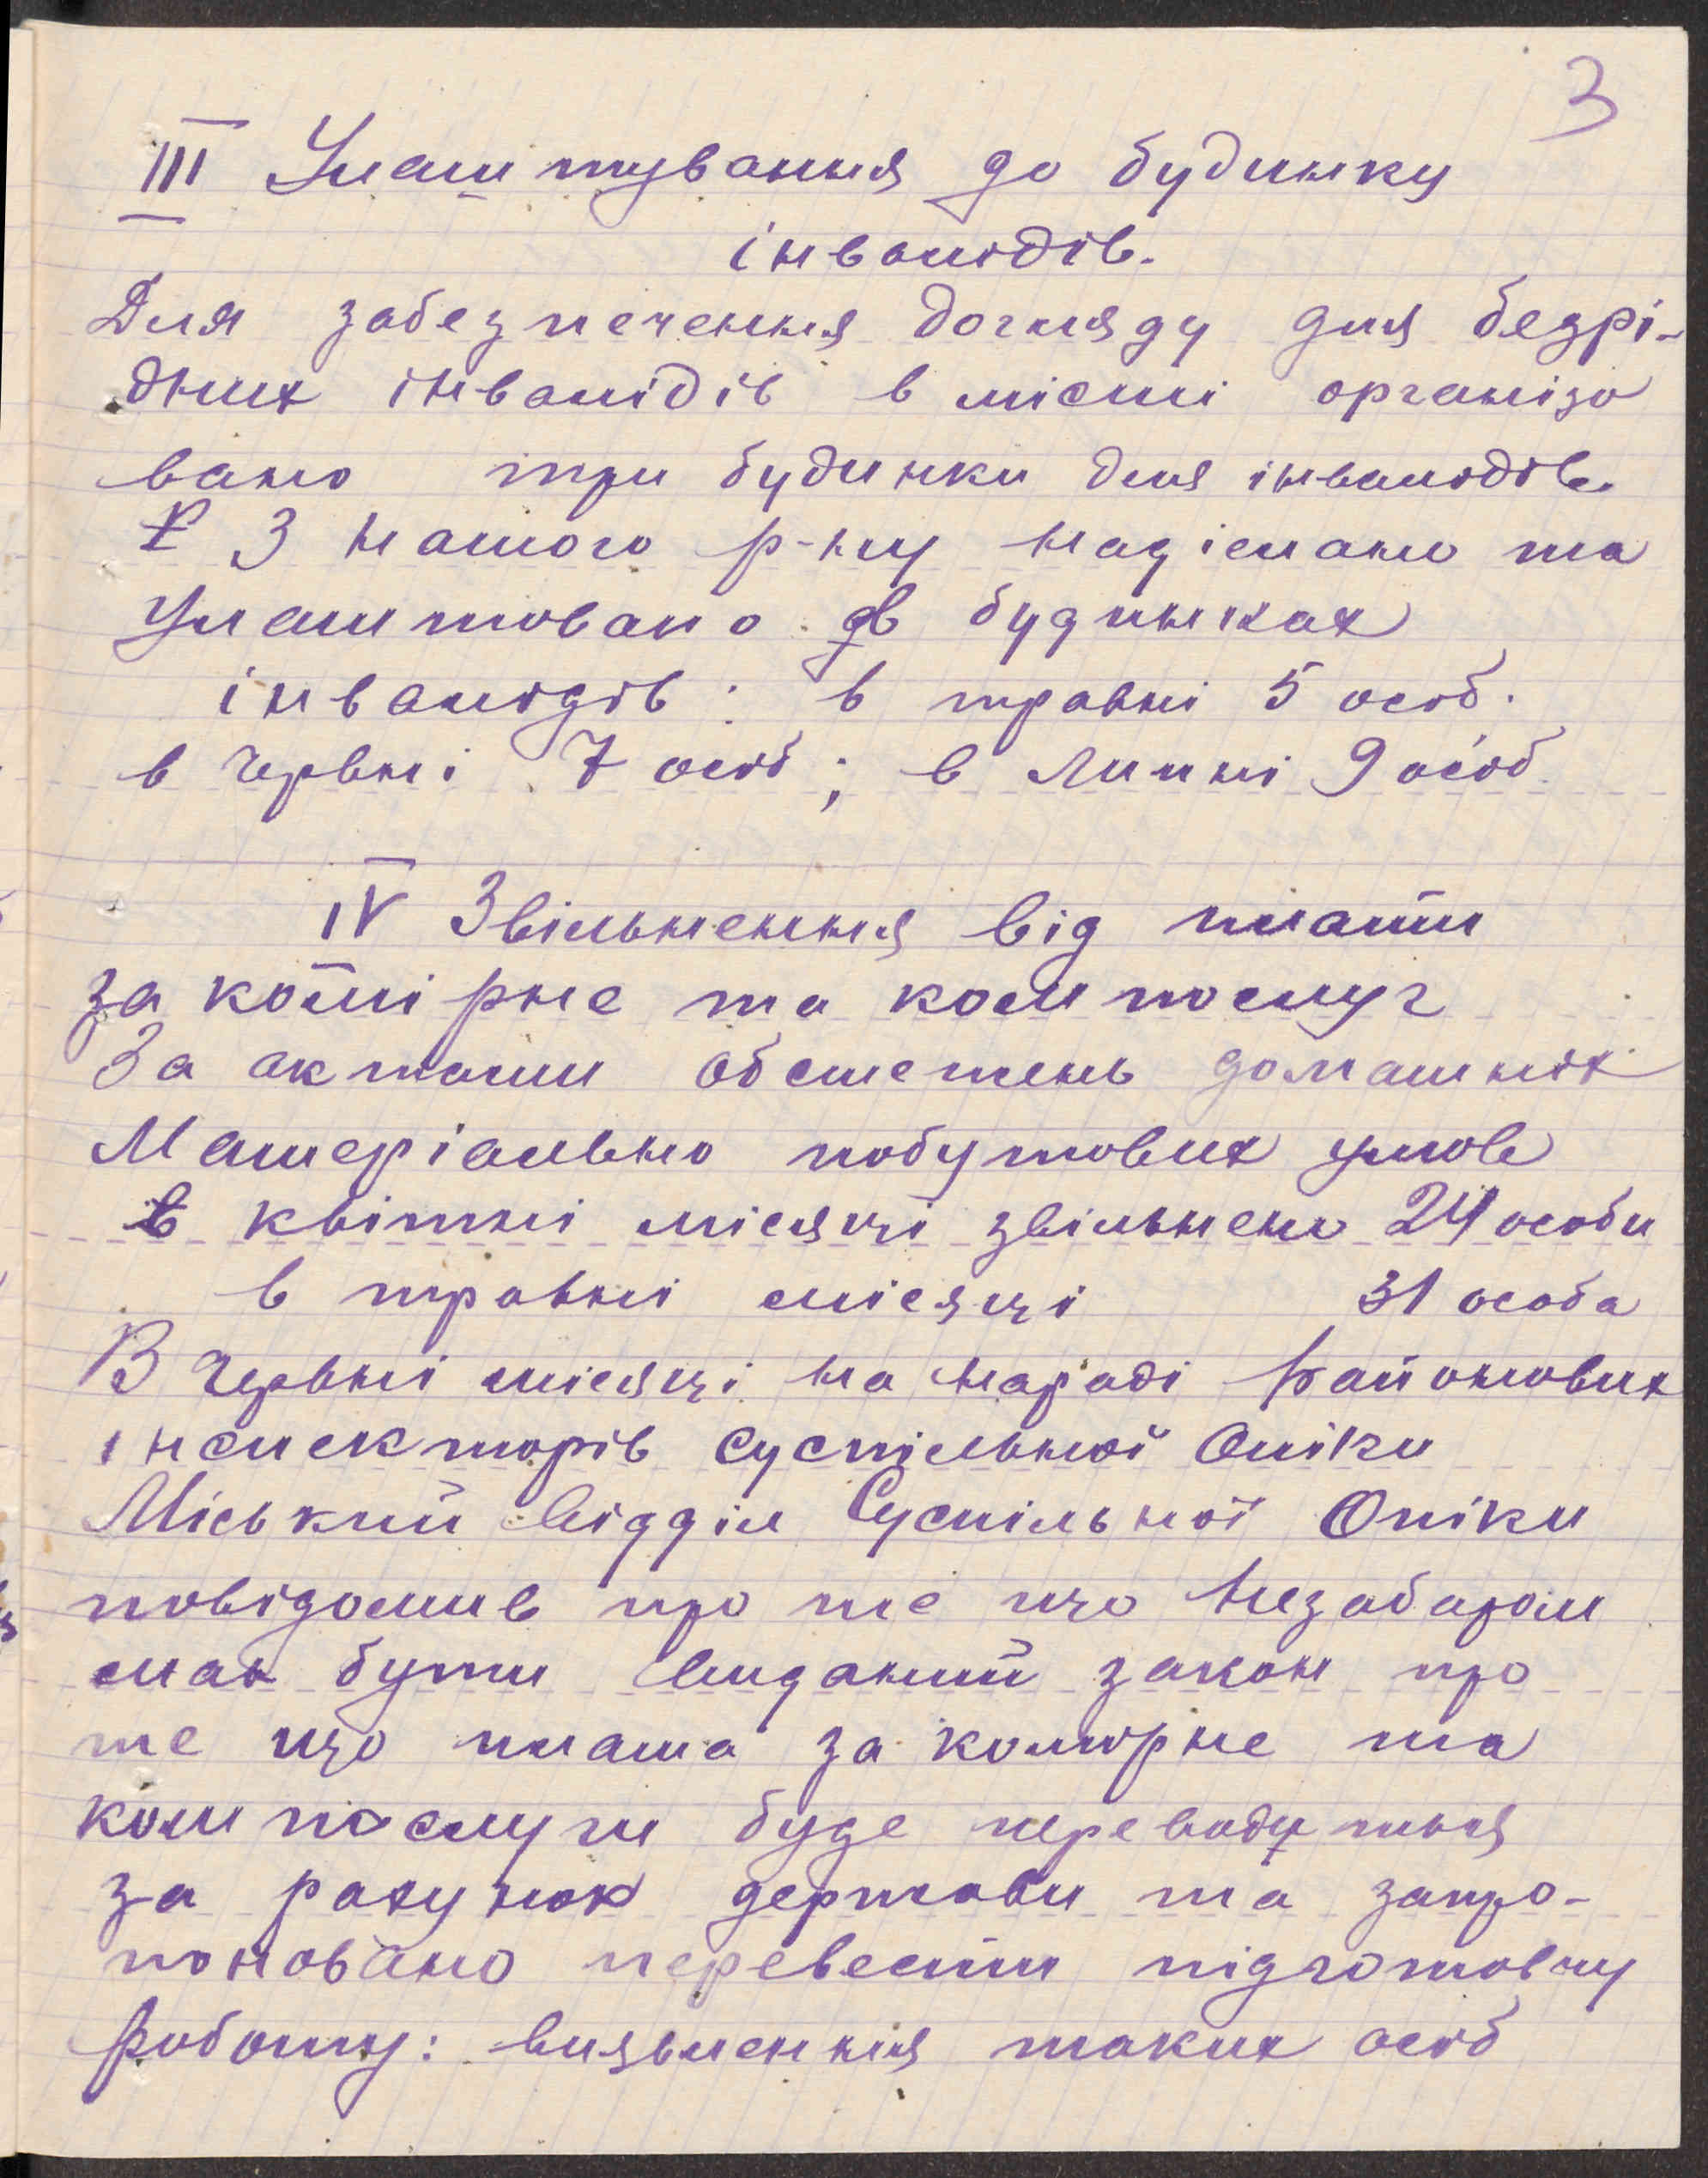 3
III Улаштування до будинку
інвалідів.
Для забезпечення догляду для безрі-
дних інвалідів в місті організо
вано три будинки для інвалідів.
З нашого р-ну надіслано та
улаштовано в будинках
інвалідів: в травні 5 осіб.
в червні 7 осіб; в Липні 9 осіб
IV Звільнення від плати
за комірне та ком послуг
За актами обстежень домашніх
Матеріально побутових умов
в квітні місяці звільнено 24 особи
в травні місяці 31 особа
В червні місяці на нараді районових
інспекторів суспільної Опіки
Міський Відділ Суспільної Опіки
повідомив про те що незабаром
має бути виданий закон про
те що плата за комірне та
ком послуги буде переводиться
за рахунок держави та запро-
поновано перевести підготовчу
роботу: виявлення таких осіб